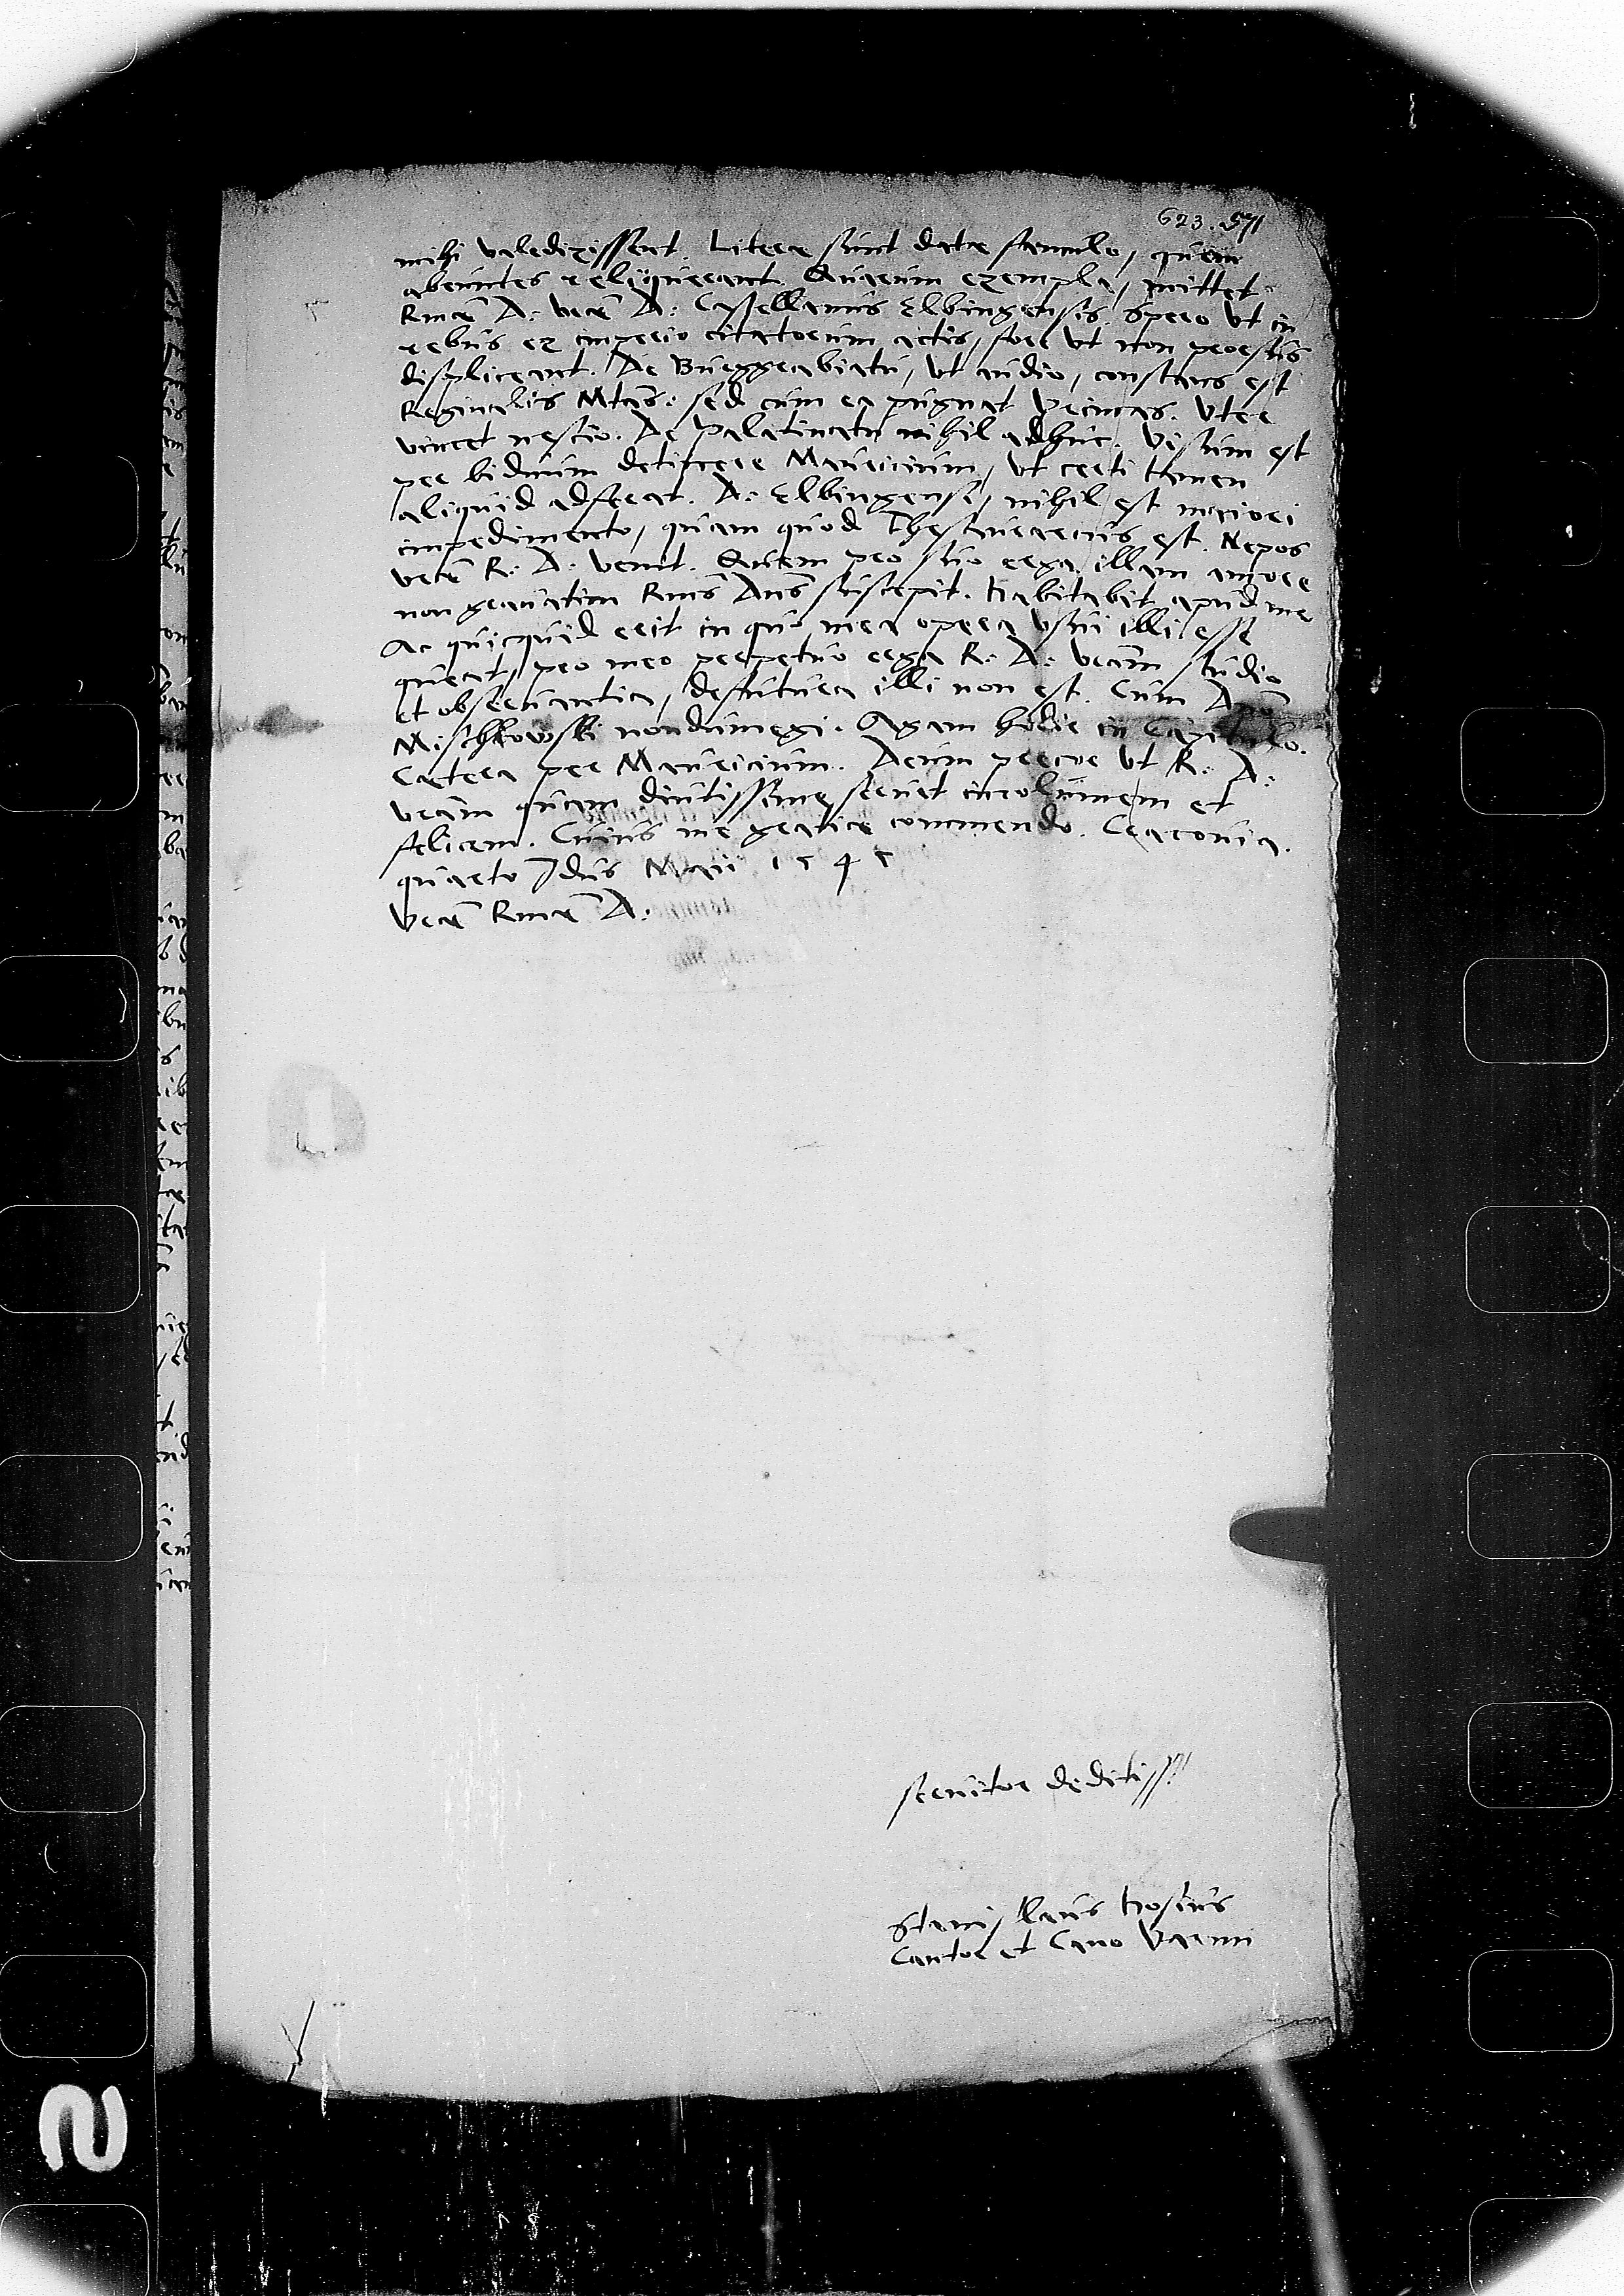 623. 571
mihi valedixissent. Literæ sunt datæ famulo, quem
abeuntes reliquerant. Quarum exempla, mittet
Rmæ D: vræ D: Castellanus Elbingensis. Spero ut in
rebus ex imperio citatorum actis, fore ut non prorsus
displiceant. De Burggrabiatu, ut audio, constans est
Reginalis Mtas: sed cum ea pugnat Pecunias. Uter
vincet nescio. De Palatinatu nihil adhuc. Visum est
per biduum detinere Mauricium, ut certi tamen
aliquid adferat. D: Elbingensi, nihil est maiori
impedimento, quam quod Thesaurarius est. Nepos
vræ R: D: venit. Quem pro suo erga illam amore
non gravatim Rmus Dns suscepit. Habitabit apud me
Ac quicquid erit in quo mea opera usui illi esse
queat, pro meo perpetuo erga R: D: vram studio
et observantia, defutura illi non est. Cum D
Mischkowski nondum egi. Agam hodie in Capitulo.
Cætera per Mauricium. Deum precor ut R: D:
vram quam diutissime servet incolumem et
felicem. Cuius me gratiæ commendo. Cracovia.
quarto Idus Maii 1545
Vræ Rmæ D:
servitor deditiss.
Stanislaus Hosius
Cantor et Cano Varmi